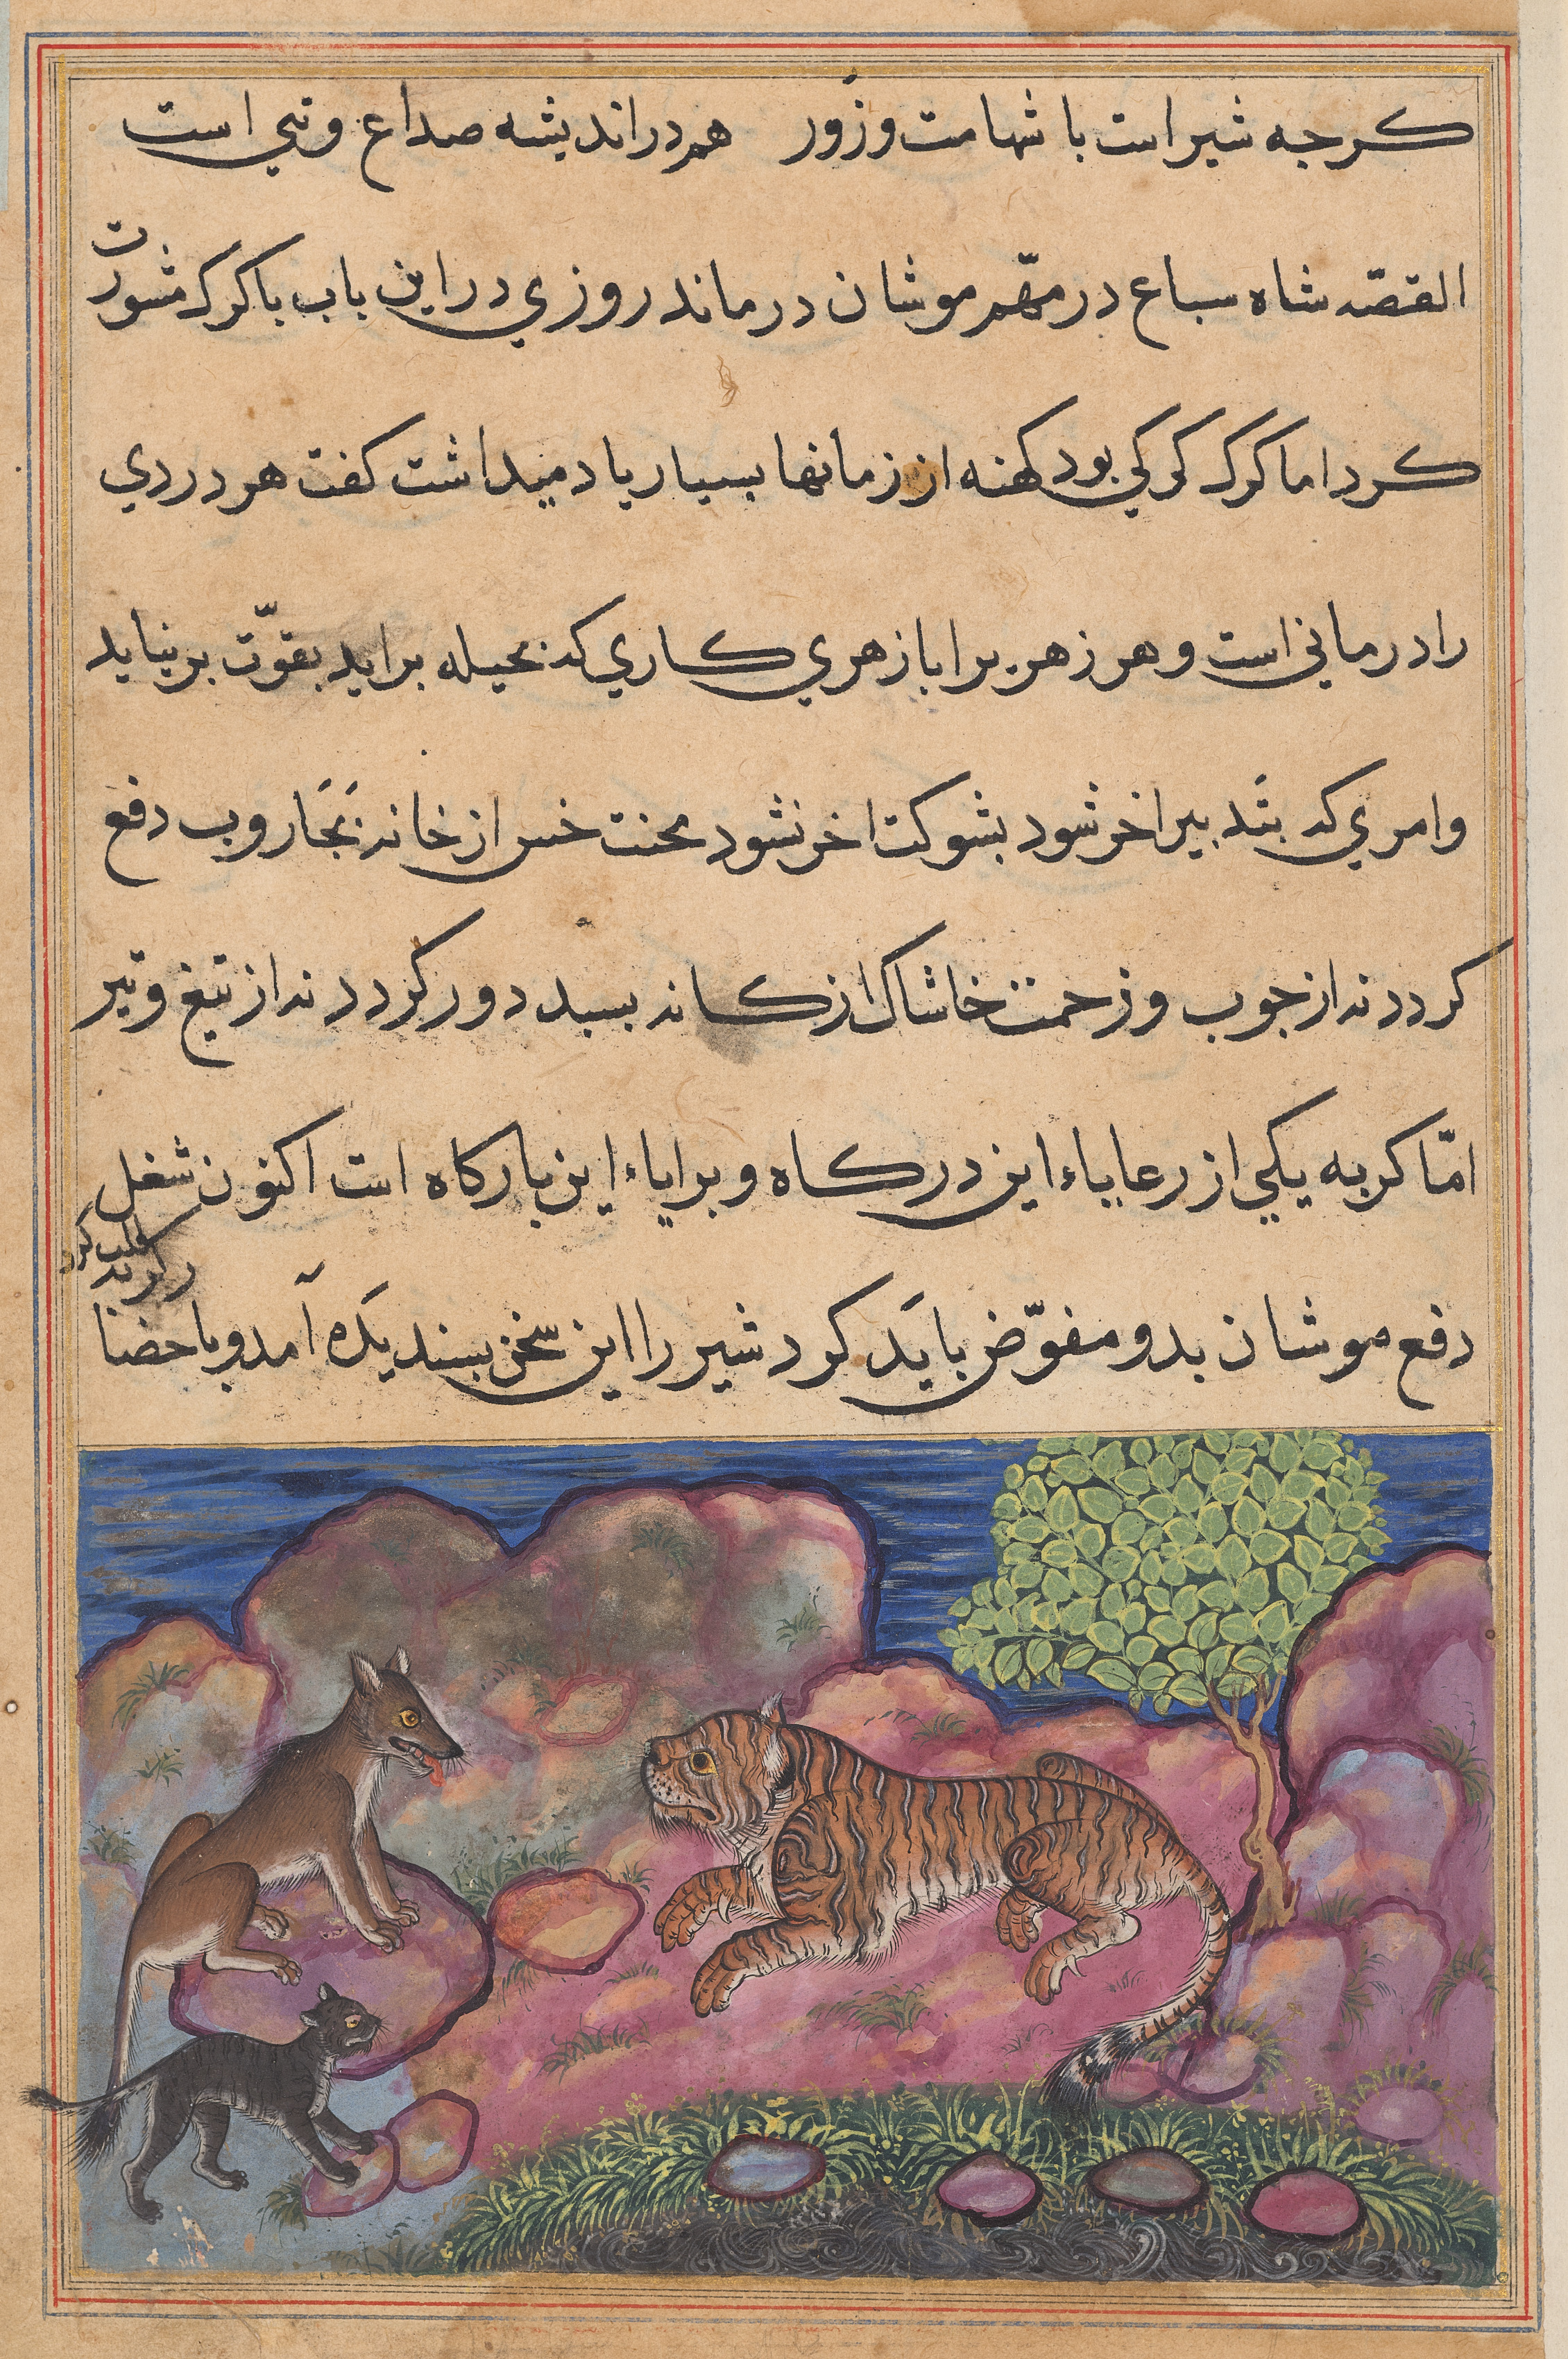 کرجه شیر است با شهامت و زور هم در اندیشه صداع و تبی است
القصّه شاه سباع در مهّم موشان درماند روزي در این باب با کرک مشورت
کرد اما کرک کرکي بود کهنه از زمانها بسیار یاد میداشت کفت هر دردي
را درماني است و هر زهریرا بازهري کاري که بحیله براید بقوّت برنیاید
و امري که بتدبیر اخر شود بشوکت اخر نشود محنت خس از خانه بجَاروب دفع
کردد نه از جوب و زحمت خاشاک از کانه بسبد دور کردد نه از تیغ و تیر
امّا کربه یکي از رعایاء این درکاه و برایاء این بارکاه است اکنون شغل
دفع موشان بدو مفوّض بایَد کرد شیر را این سخن بسندیدَه آمد و باحضار
کربه طلب کرد